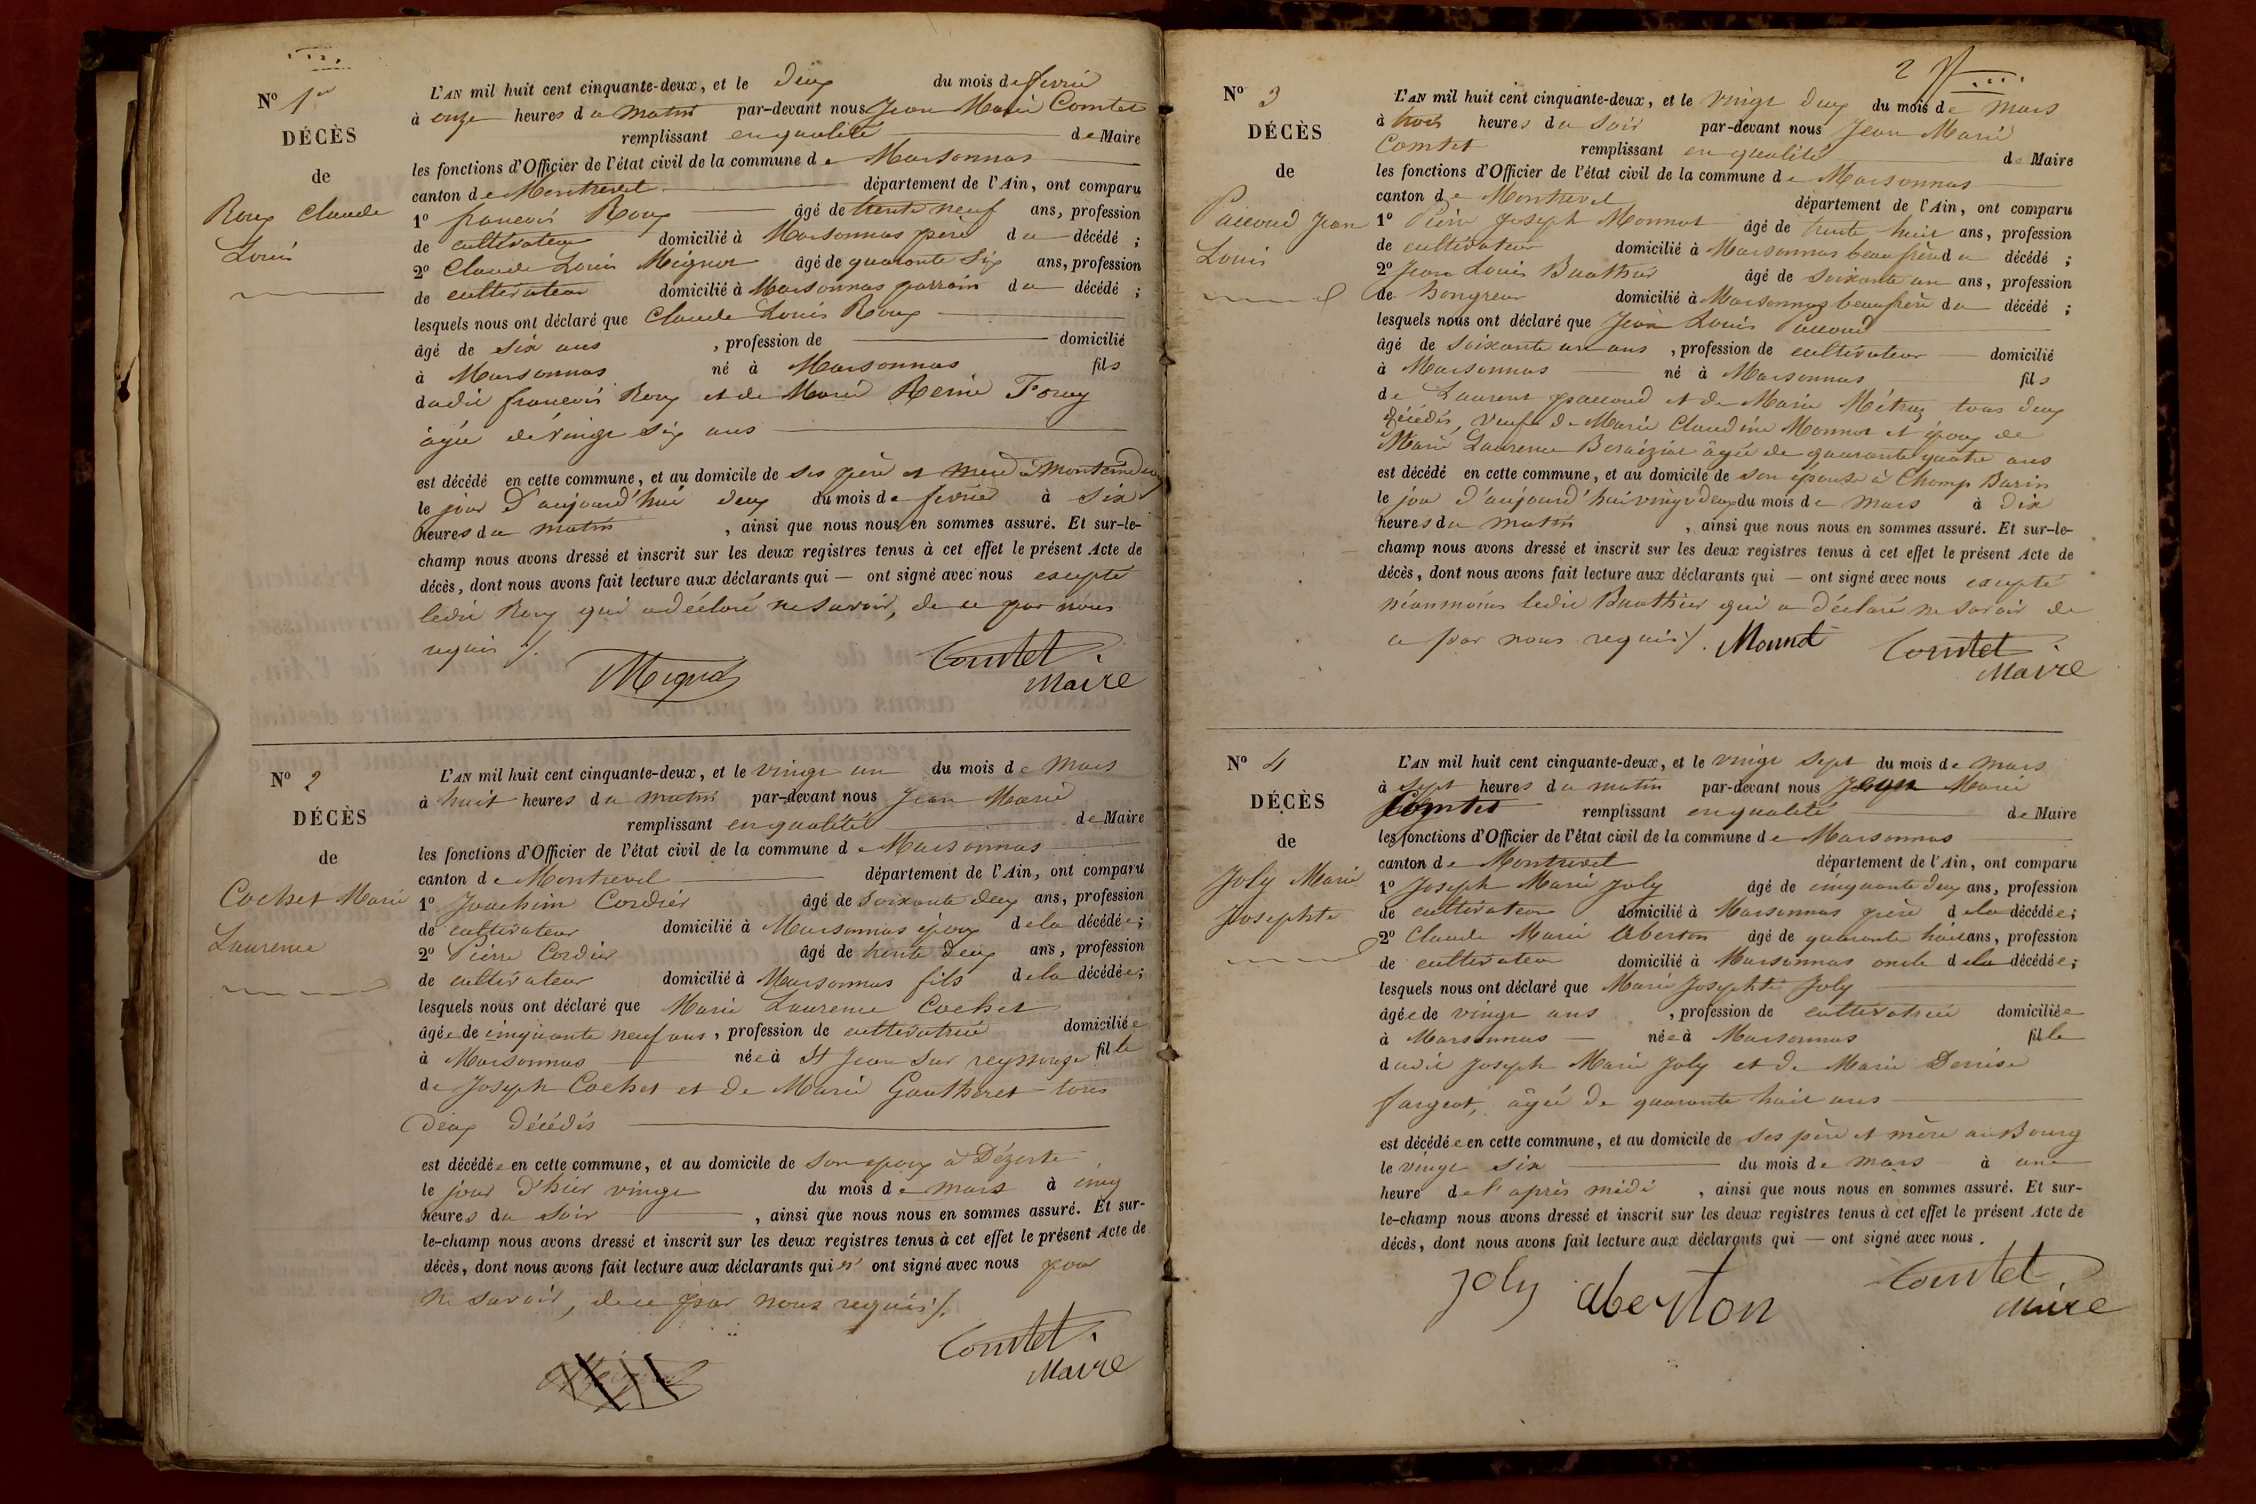 N° 1er
DÉCÈS
de
Roux Claude
Louis
L'AN mil huit cent cinquante-deux, et le deux du mois de fevrier
à onze heures du matin par-devant nous Jean Marie Comtet
remplissant en qualité de Maire
les fonctions d'Officier de l'état civil de la commune de Marsonnas
canton de Montrevel département de l'Ain, ont comparu
1° francois Roux âgé de trente neuf ans, profession
de cultivateur domicilié à Marsonnas père du décédé ;
2° Claude Louis Mignot âgé de quarante six ans, profession
de cultivateur domicilié à Marsonnas parrain du décédé ;
lesquels nous ont déclaré que Claude Louis Roux
âgé de six ans , profession de domicilié
à Marsonnas né à Marsonnas fils
dudit francois Roux et de Marie Reine
âgée de vingt six ans
est décédé en cette commune, et au domicile de ses père et mère à
le jour d'aujourd'hui deux du mois de fevrier à six
heures du matin , ainsi que nous nous en sommes assuré. Et sur-le-
champ nous avons dressé et inscrit sur les deux registres tenus à cet effet le présent Acte de
décès, dont nous avons fait lecture aux déclarants qui — ont signé avec nous excepté
ledit Roux qui a déclaré ne savoir, de ce par nous
requis /.
Mignot Comtet
Maire
N° 2
DÉCÈS
de
Cochet Marie
Laurence
L'AN mil huit cent cinquante-deux, et le vingt un du mois de Mars
à huit heures du matin par-devant nous Jean Marie
remplissant en qualité de Maire
les fonctions d'Officier de l'état civil de la commune de Marsonnas
canton de Montrevel département de l'Ain, ont comparu
1° Joachim Cordier âgé de soixante deux ans, profession
de cultivateur domicilié à Marsonnas époux de la décédée ;
2° Pierre Cordier âgé de trente deux ans, profession
de cultivateur domicilié à Marsonnas fils de la décédée ;
lesquels nous ont déclaré que Marie Laurence Cochet
âgée de cinquante neuf ans, profession de cultivatrice domiciliée
à Marsonnas née à St Jean sur reyssouze fille
de Joseph Cochet et de Marie Gautheret tous
deux décédés
est décédée en cette commune, et au domicile de son epoux à Dézerte
le jour d'hier vingt du mois de mars à cinq
heures du soir , ainsi que nous nous en sommes assuré. Et sur-
le-champ nous avons dressé et inscrit sur les deux registres tenus à cet effet le présent Acte de
décès, dont nous avons fait lecture aux déclarants qui n' ont signé avec nous pour
ne savoir, de ce par nous requis /.
Comtet
Maire
2
N° 3
DÉCÈS
de
Paccoud Jean
Louis
L'AN mil huit cent cinquante-deux, et le vingt deux du mois de Mars
à trois heures du soir par-devant nous Jean Marie
Comtet remplissant en qualité de Maire
les fonctions d'Officier de l'état civil de la commune de Marsonnas
canton de Montrevel département de l'Ain, ont comparu
1° Pierre Joseph Monnot âgé de trente huit ans, profession
de cultivateur domicilié à Marsonnas beaufrère du décédé ;
2° Jean Louis Buathier âgé de soixante un ans, profession
de hongreur domicilié à Marsonnas beaufrère du décédé ;
lesquels nous ont déclaré que Jean Louis Paccoud
âgé de soixante un ans , profession de cultivateur domicilié
à Marsonnas né à Marsonnas fils
de Laurent paccoud et de Marie Métraz tous deux
décédés, veuf de Marie Claudine Monnot et époux de
Marie Laurence âgée de quarante quatre ans
est décédé en cette commune, et au domicile de son épouse à Champ Burin
le jour d'aujourd'hui vingt deux du mois de Mars à dix
heures du matin , ainsi que nous nous en sommes assuré. Et sur-le-
champ nous avons dressé et inscrit sur les deux registres tenus à cet effet le présent Acte de
décès, dont nous avons fait lecture aux déclarants qui — ont signé avec nous excepté
néanmoins ledit Buathier qui a déclaré ne savoir de
ce par nous requis /. Monnot Comtet
Maire
N° 4
DÉCÈS
de
Joly Marie
Josephte
L'AN mil huit cent cinquante-deux, et le vingt sept du mois de Mars
à sept heures du matin par-devant nous Jean Marie
Comtet remplissant en qualité de Maire
les fonctions d'Officier de l'état civil de la commune de Marsonnas
canton de Montrevel département de l'Ain, ont comparu
1° Joseph Marie Joly âgé de cinquante deux ans, profession
de cultivateur domicilié à Marsonnas père de la décédée ;
2° Claude Marie Aberton âgé de quarante huit ans, profession
de cultivateur domicilié à Marsonnas oncle de la décédée ;
lesquels nous ont déclaré que Marie Josephte Joly
âgée de vingt ans , profession de cultivatrice domiciliée
à Marsonnas née à Marsonnas fille
dudit Joseph Marie Joly et de Marie Denise
fargeot, âgée de quarante huit ans
est décédée en cette commune, et au domicile de ses père et mère au Bourg
le vingt six du mois de mars à une
heure de l'après midi , ainsi que nous nous en sommes assuré. Et sur-
le-champ nous avons dressé et inscrit sur les deux registres tenus à cet effet le présent Acte de
décès, dont nous avons fait lecture aux déclarants qui — ont signé avec nous.
Joly aberton Comtet
Maire